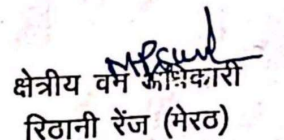 क्षेत्रीय वन अधिकारी
रिठानी रेंज (मेरठ)